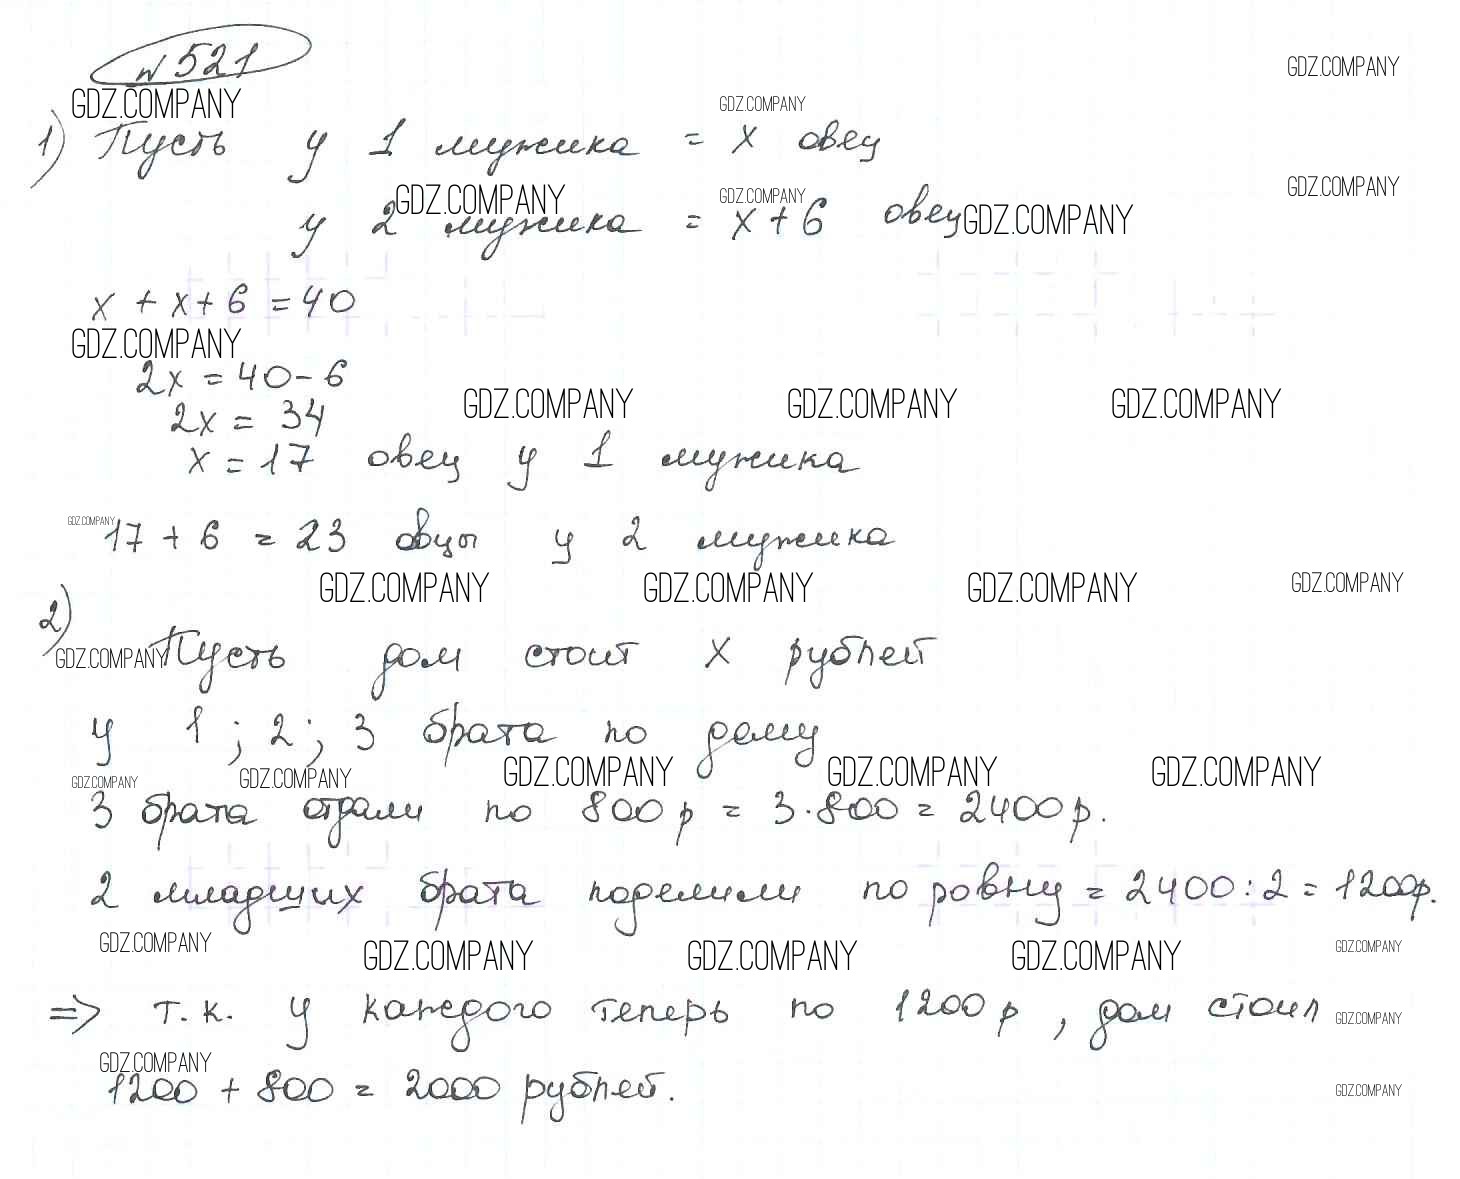 №521
GDZ.COMPANY
GDZ.COMPANY
GDZ.COMPANY
1) Пусть у 1 мужика = x овец
GDZ.COMPANY
GDZ.COMPANY
GDZ.COMPANY
у 2 мужика = x + 6 овец GDZ.COMPANY
x + x + 6 = 40
GDZ.COMPANY
2x = 40 - 6
GDZ.COMPANY GDZ.COMPANY GDZ.COMPANY
2x = 34
x = 17 овец у 1 мужика
GDZ.COMPANY
17 + 6 = 23 овцы у 2 мужика
GDZ.COMPANY GDZ.COMPANY GDZ.COMPANY GDZ.COMPANY
2)
GDZ.COMPANY Пусть дом стоит x рублей
у 1; 2; 3 брата по дому
GDZ.COMPANY GDZ.COMPANY GDZ.COMPANY GDZ.COMPANY GDZ.COMPANY
3 брата отдали по 800 р = 3·800 = 2400 р.
2 младших брата поделили по ровну = 2400 : 2 = 1200р.
GDZ.COMPANY GDZ.COMPANY GDZ.COMPANY GDZ.COMPANY GDZ.COMPANY
=> т.к. у каждого теперь по 1200 р, дом стоил GDZ.COMPANY
GDZ.COMPANY
1200 + 800 = 2000 рублей. GDZ.COMPANY